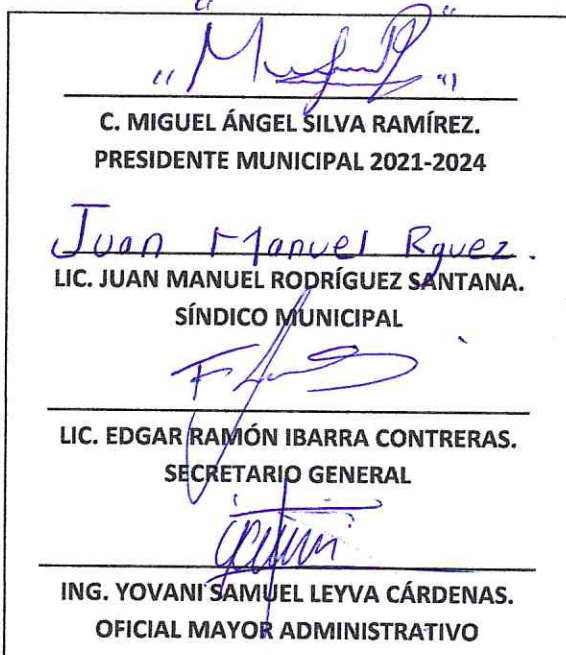 C. MIGUEL ÁNGEL SILVA RAMÍREZ.
PRESIDENTE MUNICIPAL 2021-2024
Juan Manuel Rguez.
LIC. JUAN MANUEL RODRÍGUEZ SANTANA.
SÍNDICO MUNICIPAL
LIC. EDGAR RAMÓN IBARRA CONTRERAS.
SECRETARIO GENERAL
ING. YOVANI SAMUEL LEYVA CÁRDENAS.
OFICIAL MAYOR ADMINISTRATIVO